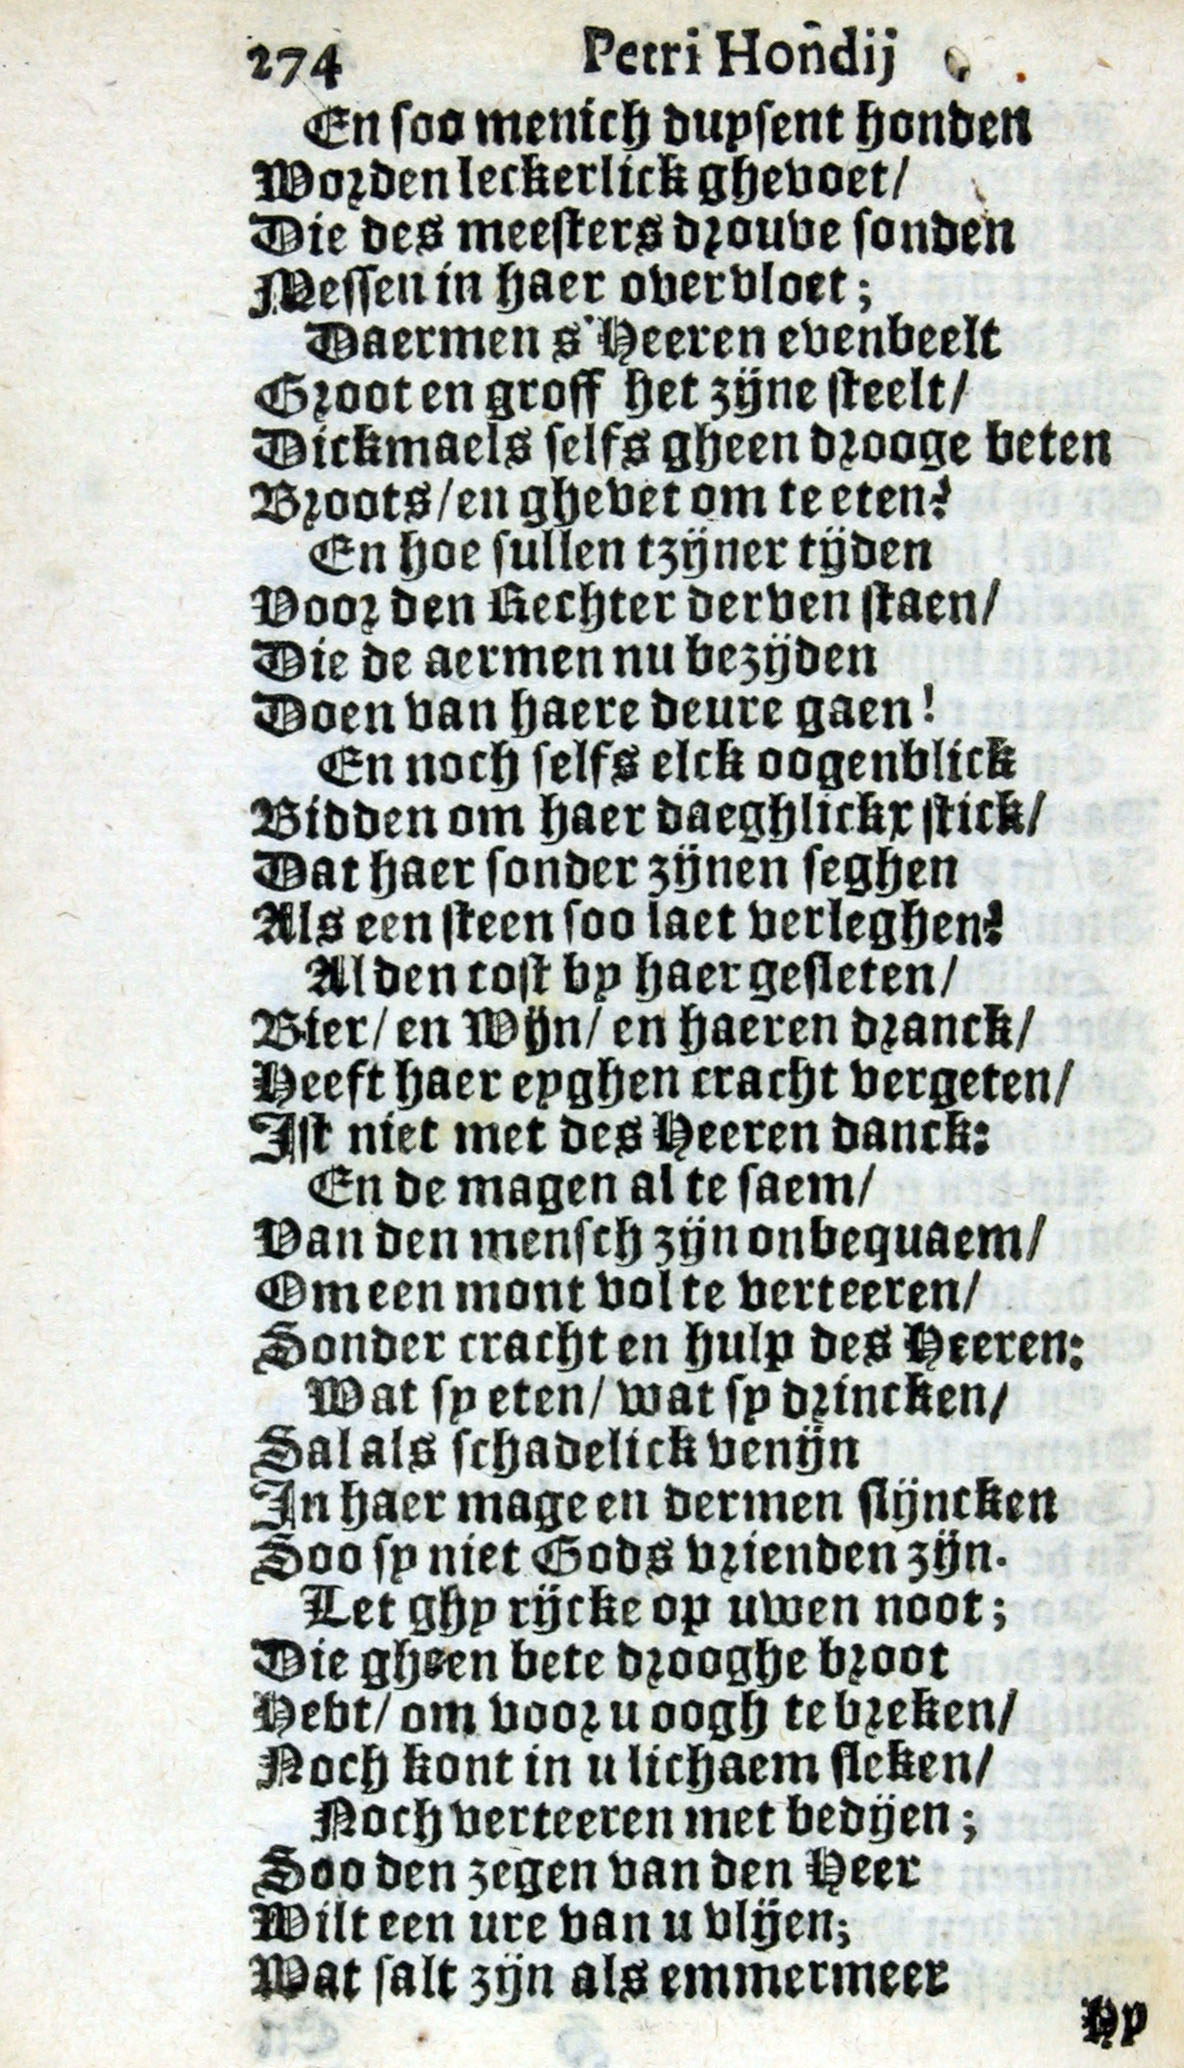 274 Petri Hon̄dij
En soo menich duysent honden
Worden leckerlick ghevoet/
Die des meesters drouve sonden
Messen in haer overvloet;
Daermen s'Heeren evenbeelt
Groot en groff het zijne steelt/
Dickmaels selfs gheen drooge beten
Broots/ en ghevet om te eten?
En hoe sullen tzijner tijden
Voor den Rechter derven staen/
Die de aermen nu bezijden
Doen van haere deure gaen!
En noch selfs elck oogenblick
Bidden om haer daeghlickx stick/
Dat haer sonder zijnen seghen
Als een steen soo laet verleghen?
Al den cost by haer gesleten/
Bier/ en Wijn/ en haeren dranck/
Heeft haer eyghen cracht vergeten/
Ist niet met des Heeren danck:
En de magen al te saem/
Van den mensch zijn onbequaem/
Om een mont vol te verteeren/
Sonder cracht en hulp des Heeren:
Wat sy eten/ wat sy drincken/
Sal als schadelick venijn
In haer mage en dermen slijncken
Soo sy niet Gods vrienden zijn.
Let ghy rijcke op uwen noot;
Die gheen bete drooghe broot
Hebt/ om voor u oogh te breken/
Noch kont in u lichaem sleken/
Noch verteeren met bedijen;
Soo den zegen van den Heer
Wilt een ure van u vlijen;
Wat salt zijn als emmermeer
Hy